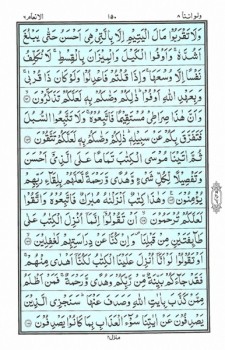 ولو اننا ٨ ١٥٠ الانعام ٦
وَلَا تَقْرَبُوْا مَالَ الْيَتِيْمِ اِلَّا بِالَّتِيْ هِيَ اَحْسَنُ حَتّٰى يَبْلُغَ
اَشُدَّهٗ ۚ وَاَوْفُوا الْكَيْلَ وَالْمِيْزَانَ بِالْقِسْطِ ۚ لَا نُكَلِّفُ
نَفْسًا اِلَّا وُسْعَهَا ۚ وَاِذَا قُلْتُمْ فَاعْدِلُوْا وَلَوْ كَانَ ذَا قُرْبٰى ۚ
وَبِعَهْدِ اللّٰهِ اَوْفُوْا ؕ ذٰلِكُمْ وَصّٰىكُمْ بِهٖ لَعَلَّكُمْ تَذَكَّرُوْنَ
وَاَنَّ هٰذَا صِرَاطِيْ مُسْتَقِيْمًا فَاتَّبِعُوْهُ ۚ وَلَا تَتَّبِعُوا السُّبُلَ
فَتَفَرَّقَ بِكُمْ عَنْ سَبِيْلِهٖ ؕ ذٰلِكُمْ وَصّٰىكُمْ بِهٖ لَعَلَّكُمْ تَتَّقُوْنَ
ثُمَّ اٰتَيْنَا مُوْسَى الْكِتٰبَ تَمَامًا عَلَى الَّذِيْٓ اَحْسَنَ
وَتَفْصِيْلًا لِّكُلِّ شَيْءٍ وَّهُدًى وَّرَحْمَةً لَّعَلَّهُمْ بِلِقَآءِ رَبِّهِمْ
يُؤْمِنُوْنَ وَهٰذَا كِتٰبٌ اَنْزَلْنٰهُ مُبٰرَكٌ فَاتَّبِعُوْهُ وَاتَّقُوْا
لَعَلَّكُمْ تُرْحَمُوْنَ اَنْ تَقُوْلُوْٓا اِنَّمَآ اُنْزِلَ الْكِتٰبُ عَلٰى
طَآئِفَتَيْنِ مِنْ قَبْلِنَا ۪ وَاِنْ كُنَّا عَنْ دِرَاسَتِهِمْ لَغٰفِلِيْنَ
اَوْ تَقُوْلُوْا لَوْ اَنَّآ اُنْزِلَ عَلَيْنَا الْكِتٰبُ لَكُنَّآ اَهْدٰى مِنْهُمْ ۚ
فَقَدْ جَآءَكُمْ بَيِّنَةٌ مِّنْ رَّبِّكُمْ وَهُدًى وَّرَحْمَةٌ ۚ فَمَنْ اَظْلَمُ
مِمَّنْ كَذَّبَ بِاٰيٰتِ اللّٰهِ وَصَدَفَ عَنْهَا ؕ سَنَجْزِي الَّذِيْنَ
يَصْدِفُوْنَ عَنْ اٰيٰتِنَا سُوْٓءَ الْعَذَابِ بِمَا كَانُوْا يَصْدِفُوْنَ
منزل ٢